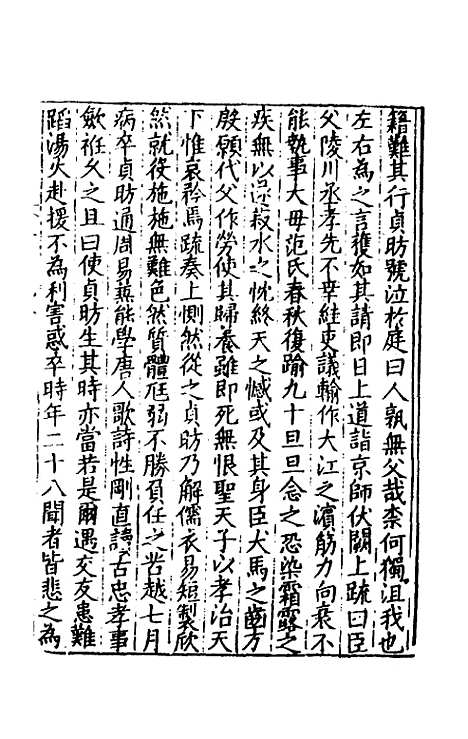 籍難其行貞昉號泣於庭曰人孰無父哉柰何獨沮我也
左右為之言獲如其請即日上道詣京師伏闕上疏曰臣
父陵川丞孝先不幸絓吏議輸作大江之濵筋力向衰不
能執事大母范氏春秋復踰九十旦旦念之恐染霜露之
疾無以逞菽水之忱終天之憾或及其身臣犬馬之齒方
殷願代父作勞使其歸養雖即死無恨聖天子以孝治天
下惟哀矜焉疏奏上惻然從之貞昉乃解儒衣易短製欣
然就役施施無難色然質體尫弱不勝負任之苦越七月
病卒貞昉通周易蓺能學唐人歌詩性剛直讀古忠孝事
歛袵久之且曰使貞昉生其時亦當若是爾遇交友患難
蹈湯火赴援不為利害惑卒時年二十八聞者皆悲之為